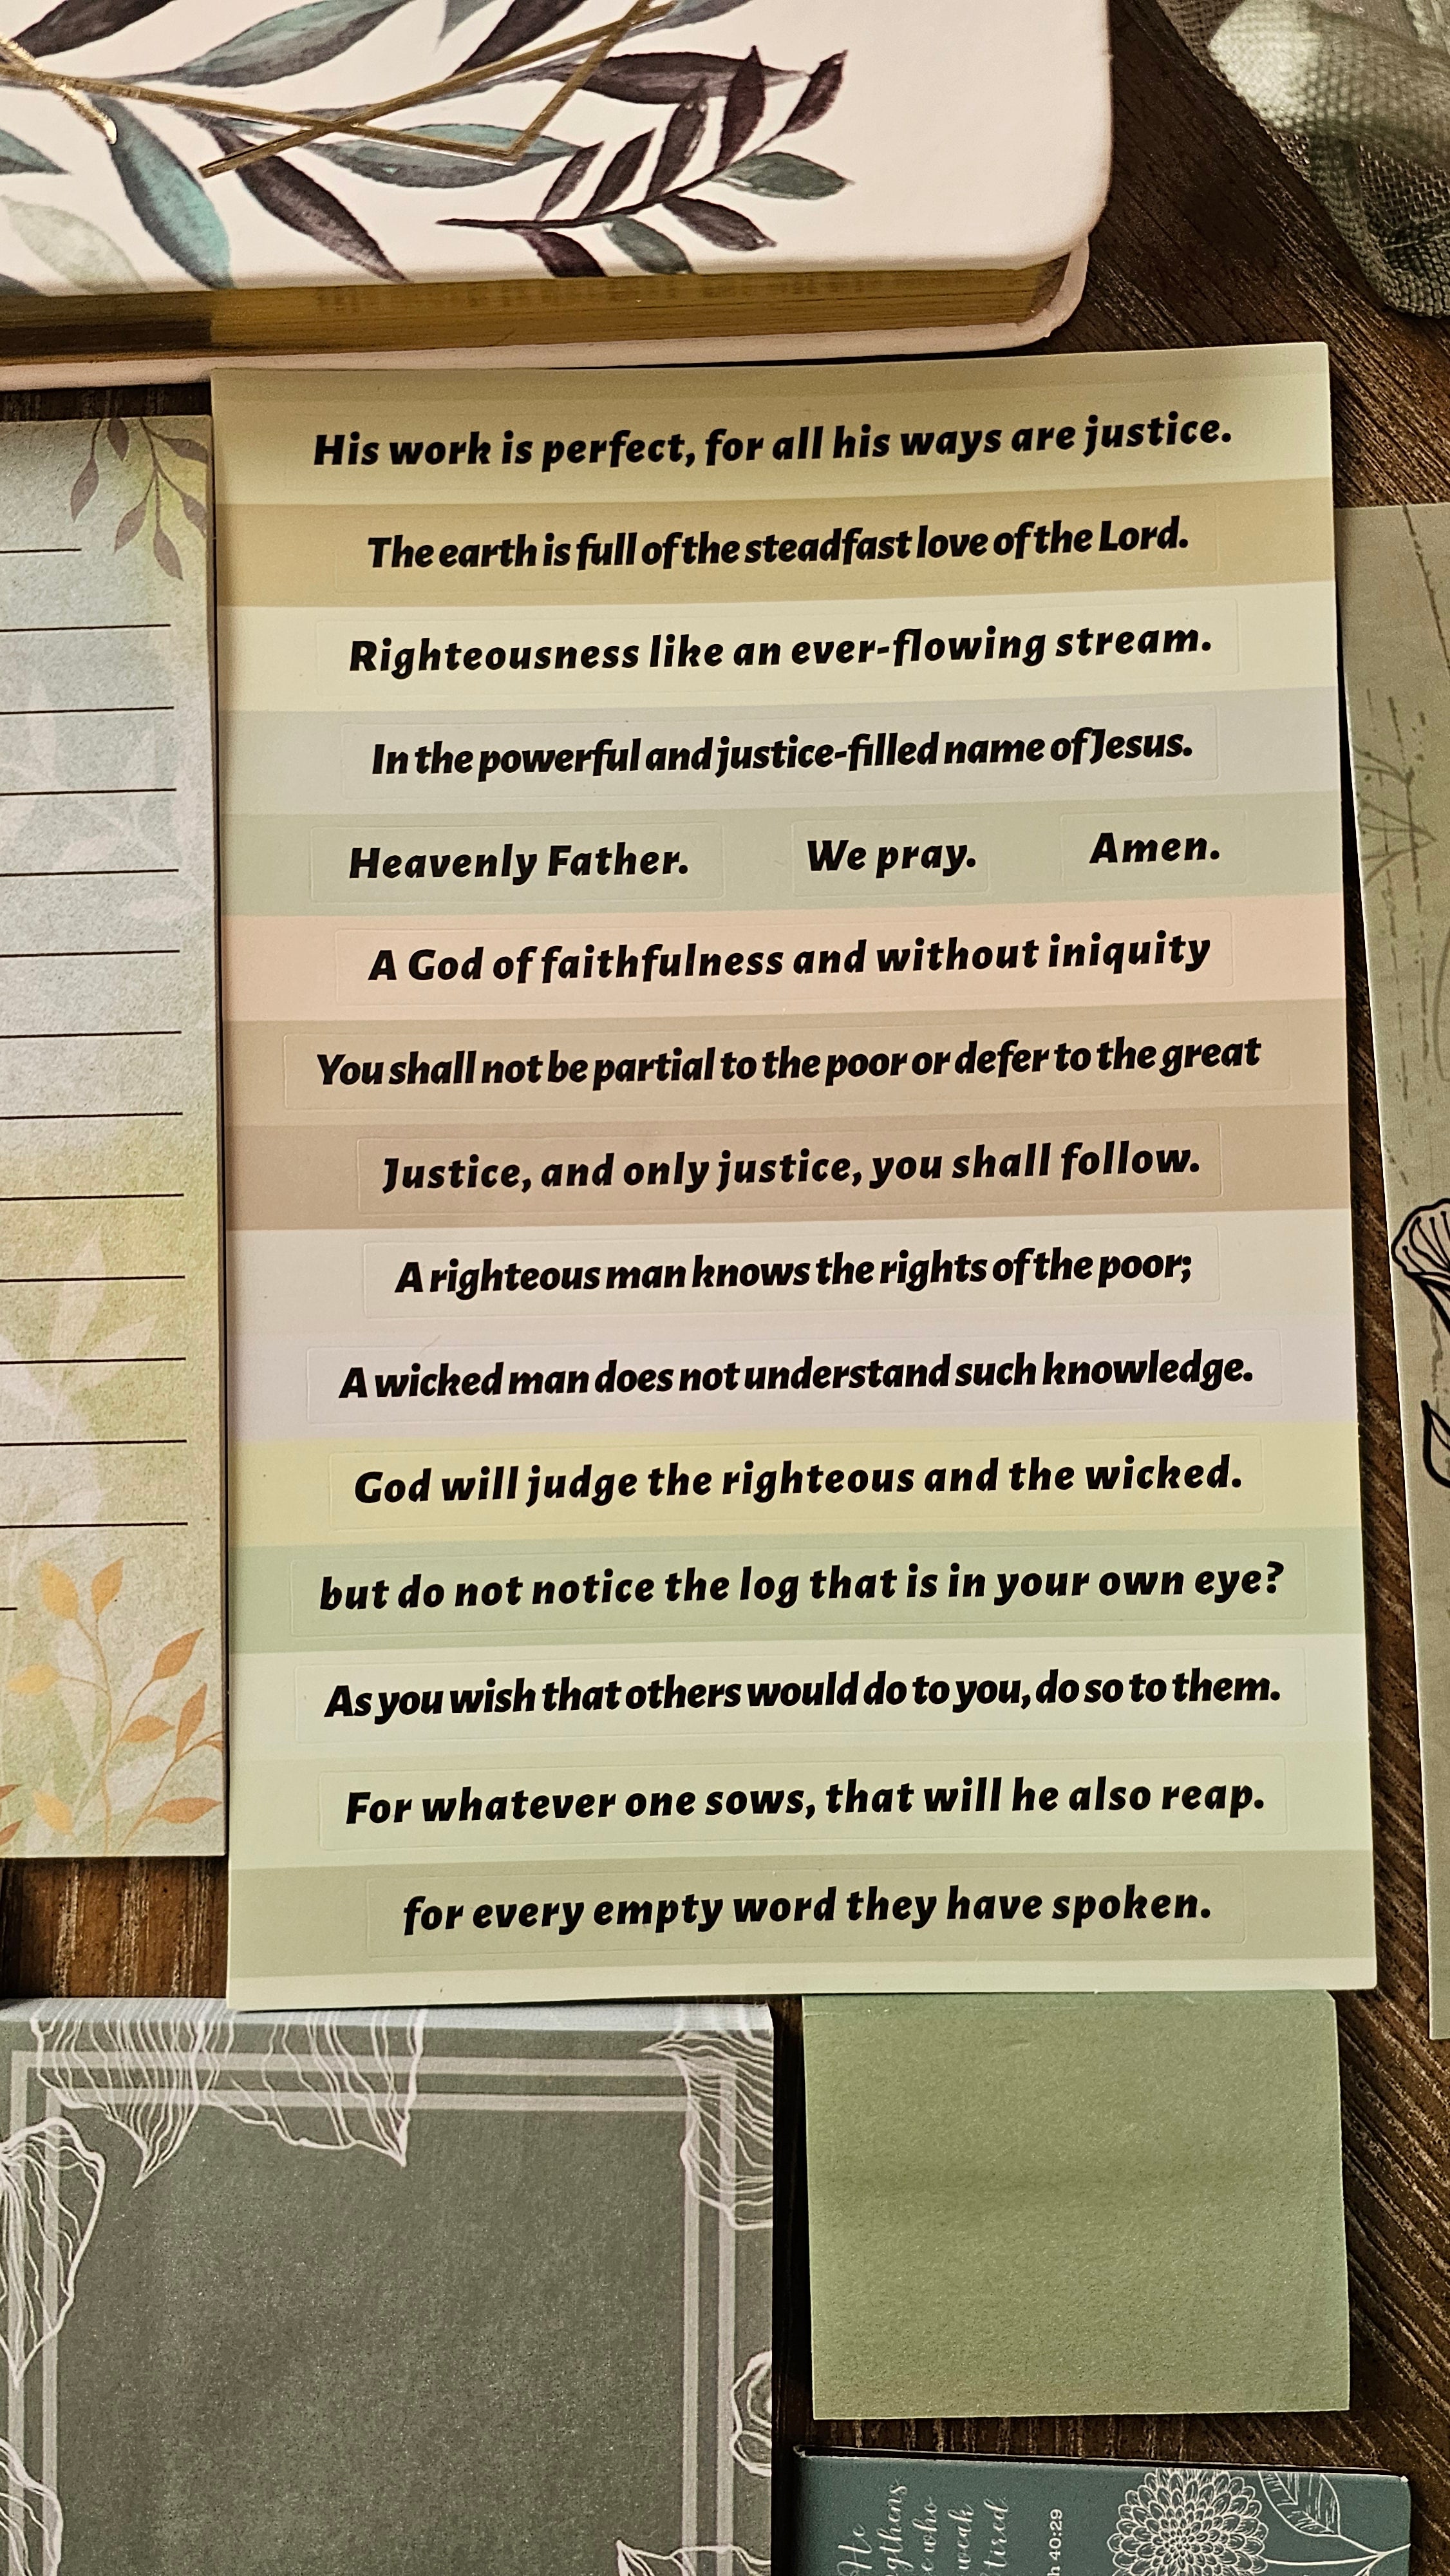 His work is perfect, for all his ways are justice.
The earth is full of the steadfast love of the Lord.
Righteousness like an ever-flowing stream.
In the powerful and justice-filled name of Jesus.
Heavenly Father. We pray. Amen.
A God of faithfulness and without iniquity
You shall not be partial to the poor or defer to the great
Justice, and only justice, you shall follow.
A righteous man knows the rights of the poor;
A wicked man does not understand such knowledge.
God will judge the righteous and the wicked.
but do not notice the log that is in your own eye?
As you wish that others would do to you, do so to them.
For whatever one sows, that will he also reap.
for every empty word they have spoken.
He
ngthens
e who
weak
tired.
h 40:29